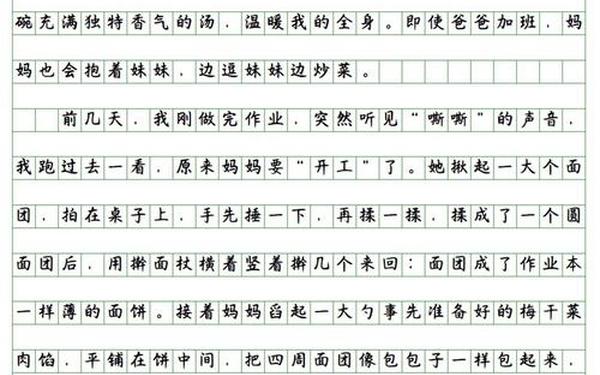 碗充满独特香气的汤，温暖我的全身。即使爸爸加班，妈
妈也会抱着妹妹，边逗妹妹边炒菜。
前几天，我刚做完作业，突然听见“嘶嘶”的声音，
我跑过去一看，原来妈妈要“开工”了。她揪起一大个面
团，拍在桌子上，手先捶一下，再揉一揉，揉成了一个圆
面团后，用擀面杖横着竖着擀几个来回：面团成了作业本
一样薄的面饼。接着妈妈舀起一大勺事先准备好的梅干菜
肉馅，平铺在饼中间，把四周面团像包包子一样包起来，